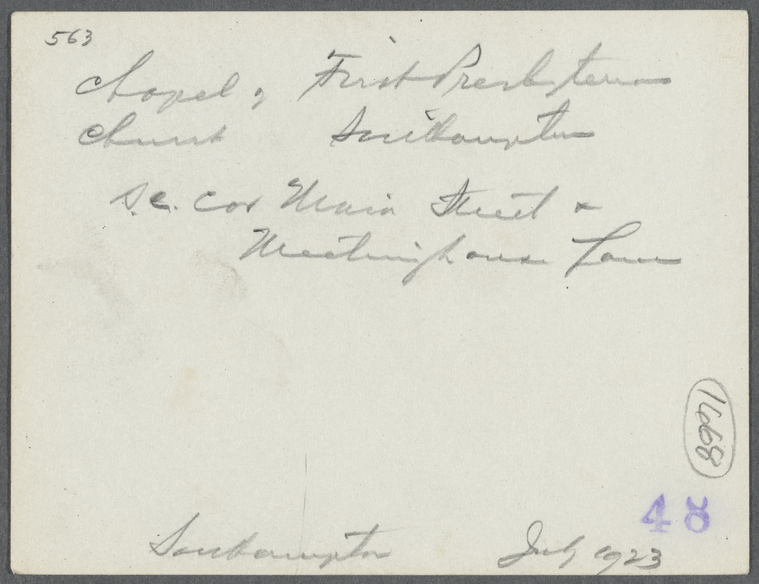 563
Chapel of First Presbyterian
Church Southampton
S.E. Cor Main Street &
Meetinghouse Lane
1668
48
Southampton July 1923